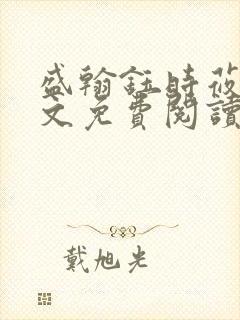 盛翰鈺時莜
文免費閱讀
戴旭光